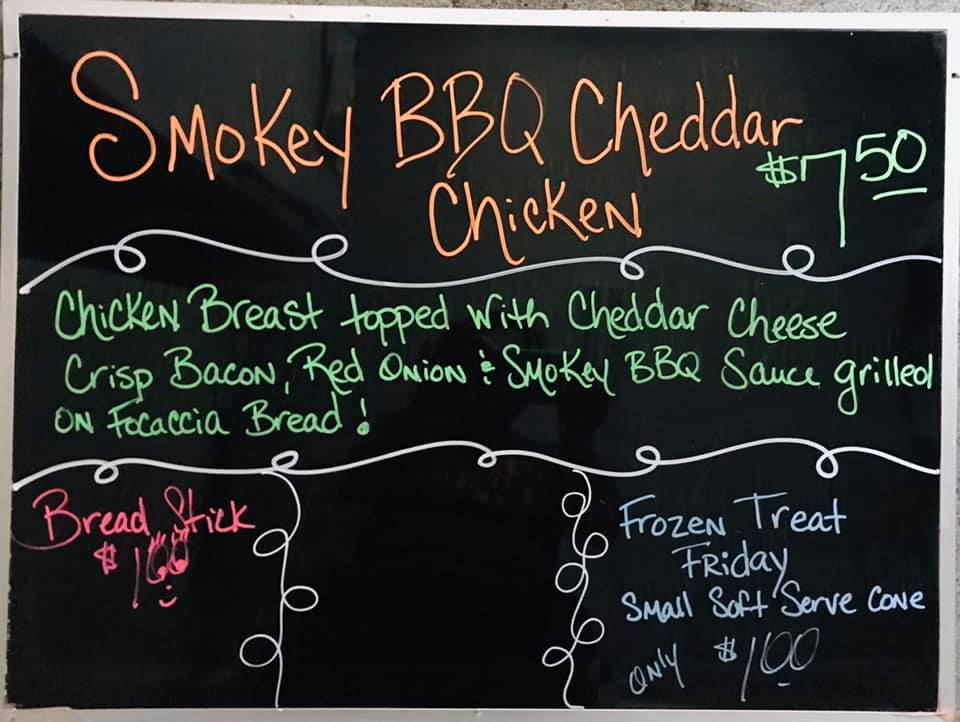 Smokey BBQ Cheddar
Chicken
$7.50
Chicken Breast topped with Cheddar Cheese
Crisp Bacon, Red Onion & Smokey BBQ Sauce grilled
on Focaccia Bread!
Bread Stick
$1.00
Frozen Treat
Friday
Small Soft Serve Cone
only $1.00